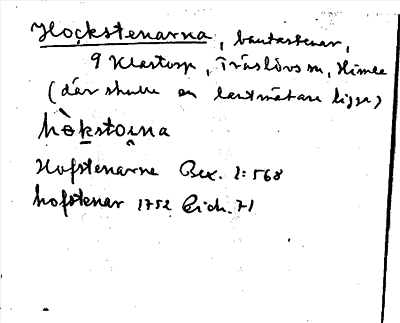 Hockstenarna, bautastenar,
9 Klastorp, Träslövs sn, Himle
(där skulle en lantmätare ligge)
hòkstoɩna
Hofstenarne Bex. 1:568
hofstenar 1752 Eich. 71